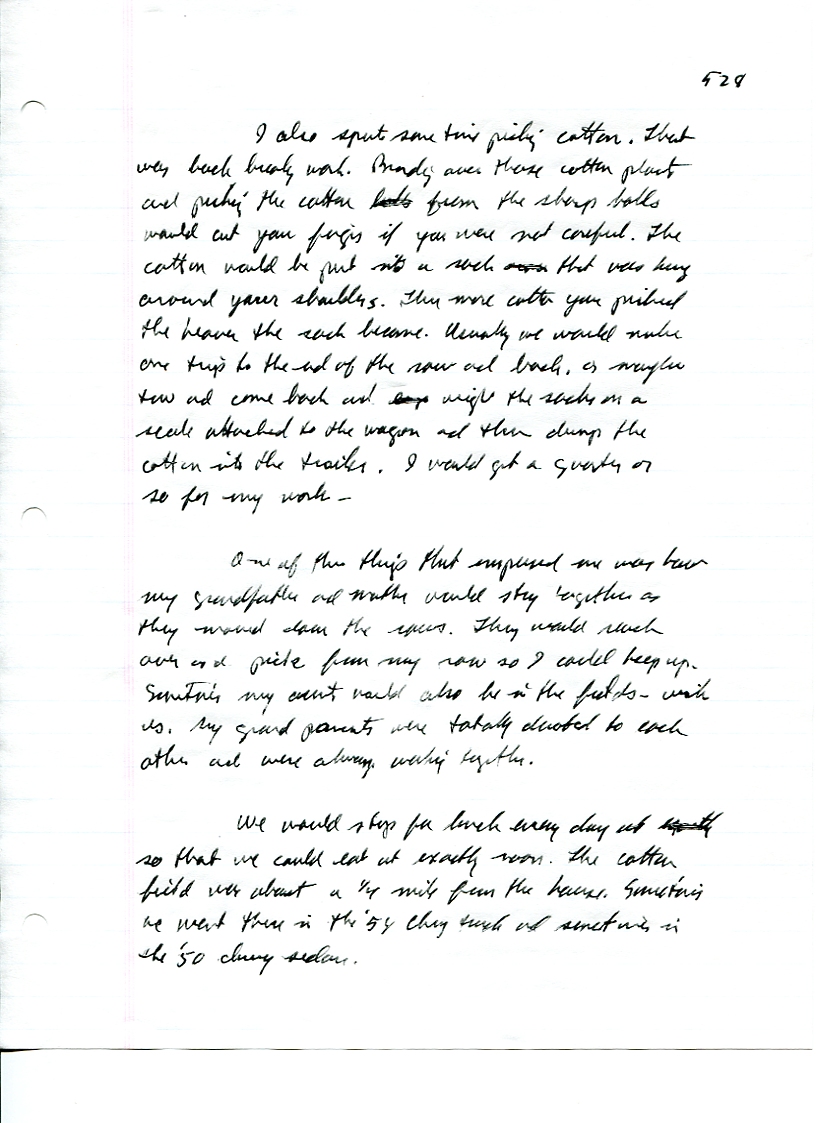 528
I also spent some time picking cotton. That
was back breaking work. Bending over those cotton plants
and picking the cotton from the sharp bolls
would cut your fingers if you were not careful. The
cotton would be put into a sack that was hung
around your shoulders. The more cotton you picked
the heavier the sack became. Usually we would make
one trip to the end of the row and back, or maybe
two and come back and weigh the sacks on a
scale attached to the wagon and then dump the
cotton into the trailer. I would get a quarter or
so for my work –
One of the things that impressed me was how
my grandfather and mother would stay together as
they moved down the rows. They would reach
over and pick from my row so I could keep up.
Sometimes my aunt would also be in the fields – with
us. My grand parents were totally devoted to each
other and were always working together.
We would stop for lunch every day at
so that we could eat at exactly noon. The cotton
field was about a 1/4 mile from the house. Sometimes
we went there in the '54 Chevy truck and sometimes in
the '50 chevy sedan.